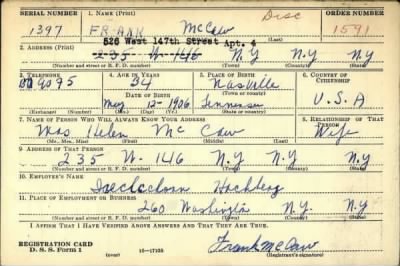 SERIAL NUMBER 1. NAME (Print) ORDER NUMBER
Disc
1397 FRANK McCaw 1591
526 West 147th Street Apt. 4
2. ADDRESS (Print)
235 W-146 N.Y N.Y
(Number and street or R. F. D. number) (Town) (County) (State)
3. TELEPHONE 4. AGE IN YEARS 5. PLACE OF BIRTH 6. COUNTRY OF CITIZENSHIP
9095 34 Nasville
DATE OF BIRTH (Town or county)
May 12-1906 Tennessee U.S.A
(Exchange) (Number) (Mo.) (Day) (Yr.) (State or country)
7. NAME OF PERSON WHO WILL ALWAYS KNOW YOUR ADDRESS 8. RELATIONSHIP OF THAT PERSON
Mrs Helen Mc Caw Wife
(Mr., Mrs., Miss) (First) (Middle) (Last)
9. ADDRESS OF THAT PERSON
235 W. 146 N.Y N.Y N.Y
(Number and street or R. F. D. number) (Town) (County) (State)
10. EMPLOYER'S NAME
Hochberg
11. PLACE OF EMPLOYMENT OR BUSINESS
260 Washington N.Y. N.Y
(Number and street or R. F. D. number) (Town) (County) (State)
I AFFIRM THAT I HAVE VERIFIED ABOVE ANSWERS AND THAT THEY ARE TRUE.
REGISTRATION CARD
D. S. S. Form 1 (over) 16—17105 Frank McCaw
(Registrant's signature)